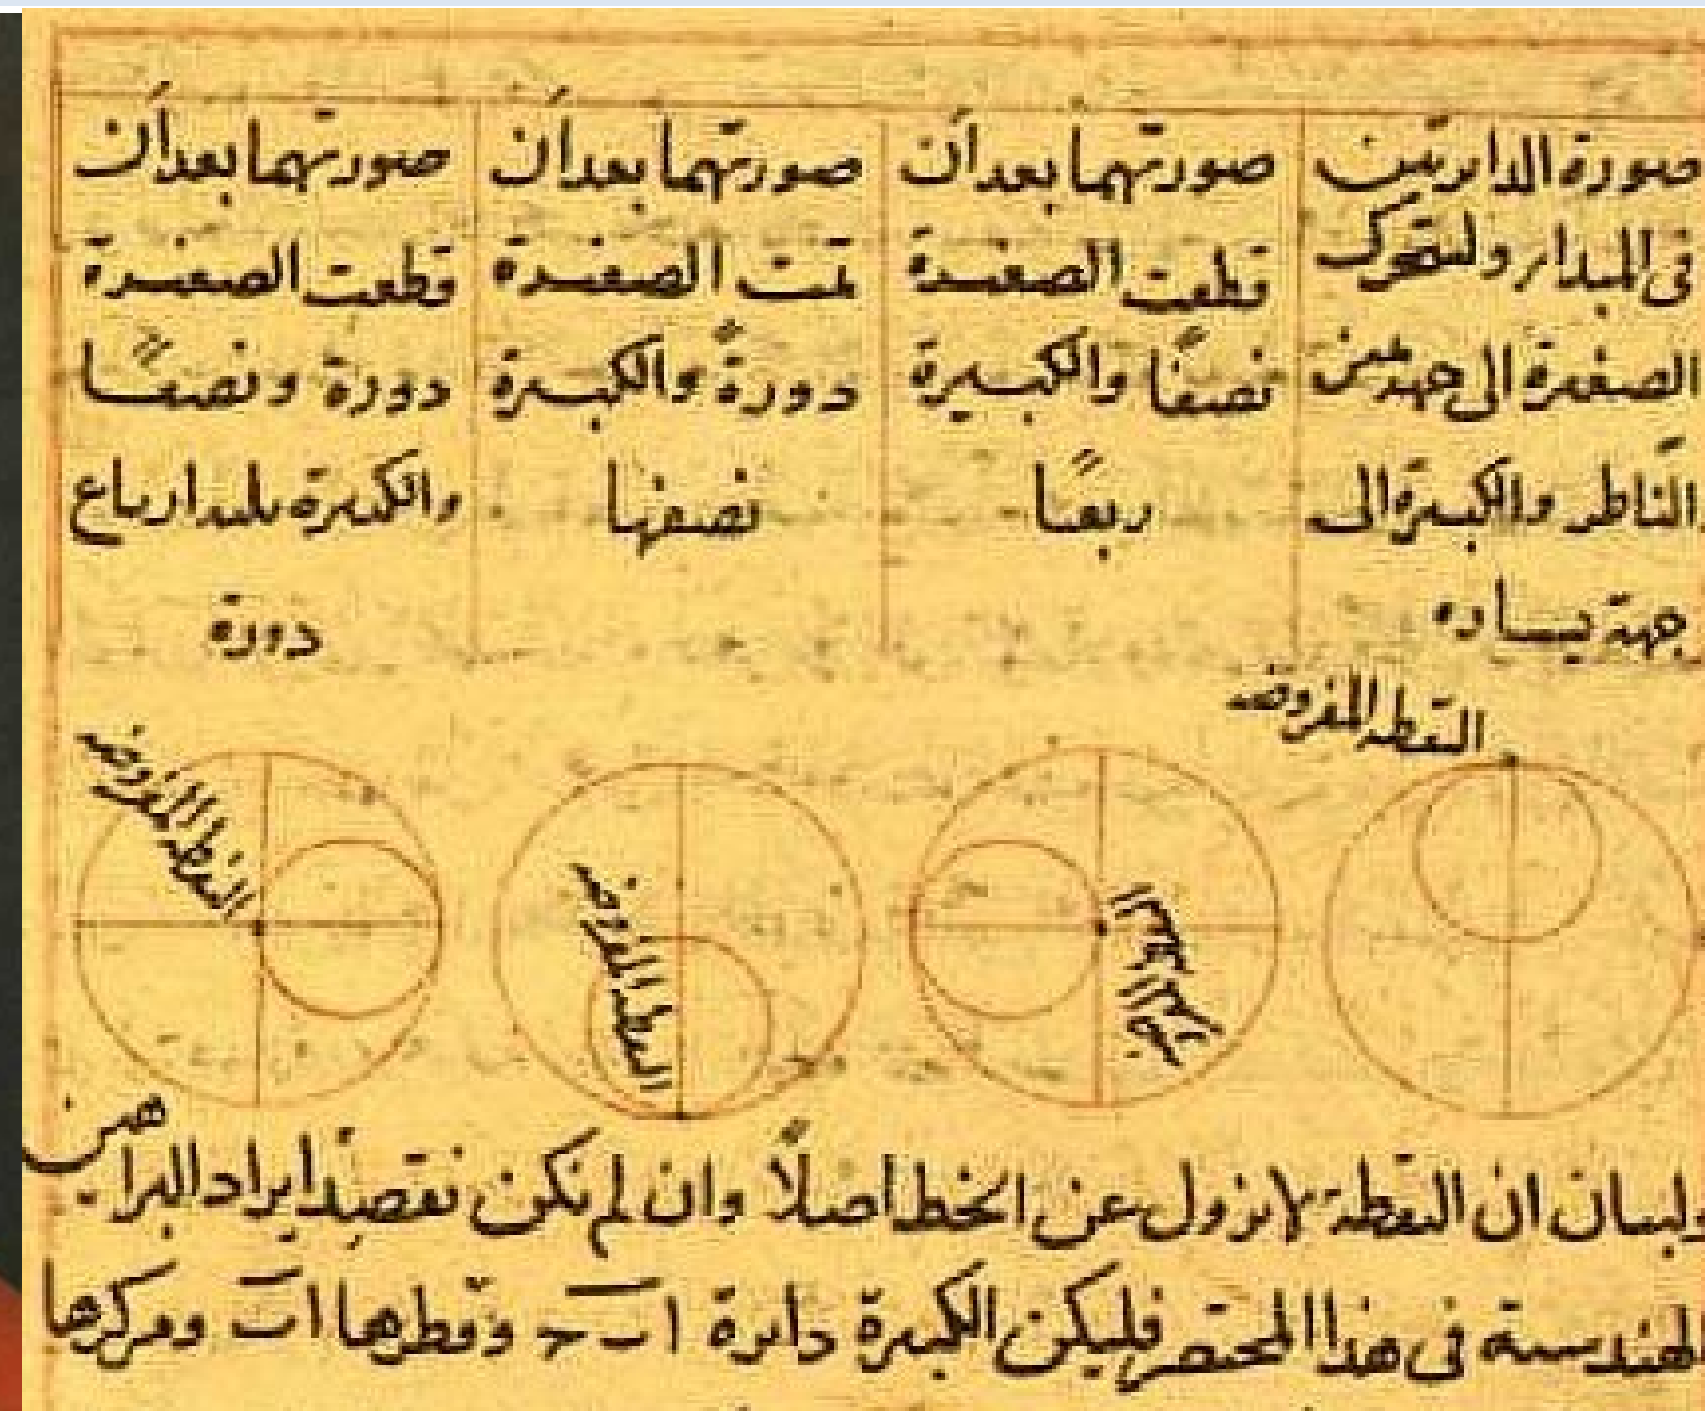 صورة الدائرتين
فى المبدأ ولتتحرك
الصغيرة الى جهة يمين
الناظر والكبيرة الى
جهة يساره
صورتهما بعد أن
قطعت الصغيرة
نصفًا والكبيرة
ربعًا
صورتهما بعد أن
تمت الصغيرة
دورةً والكبيرة
نصفها
صورتهما بعد أن
قطعت الصغيرة
دورة ونصفًا
والكبيرة ثلثة ارباع
دورة
النقطة المفروضة
النقطة المفروضة
النقطة المفروضة
النقطة المفروضة
ولبيان ان النقطة لا يزول عن الخط أصلاً وان لم نكن نقصد ايراد البراهين
الهندسية فى هذا المختصر فليكن الكبيرة دائرة ا ب ج وقطرها ا ب ومركزها